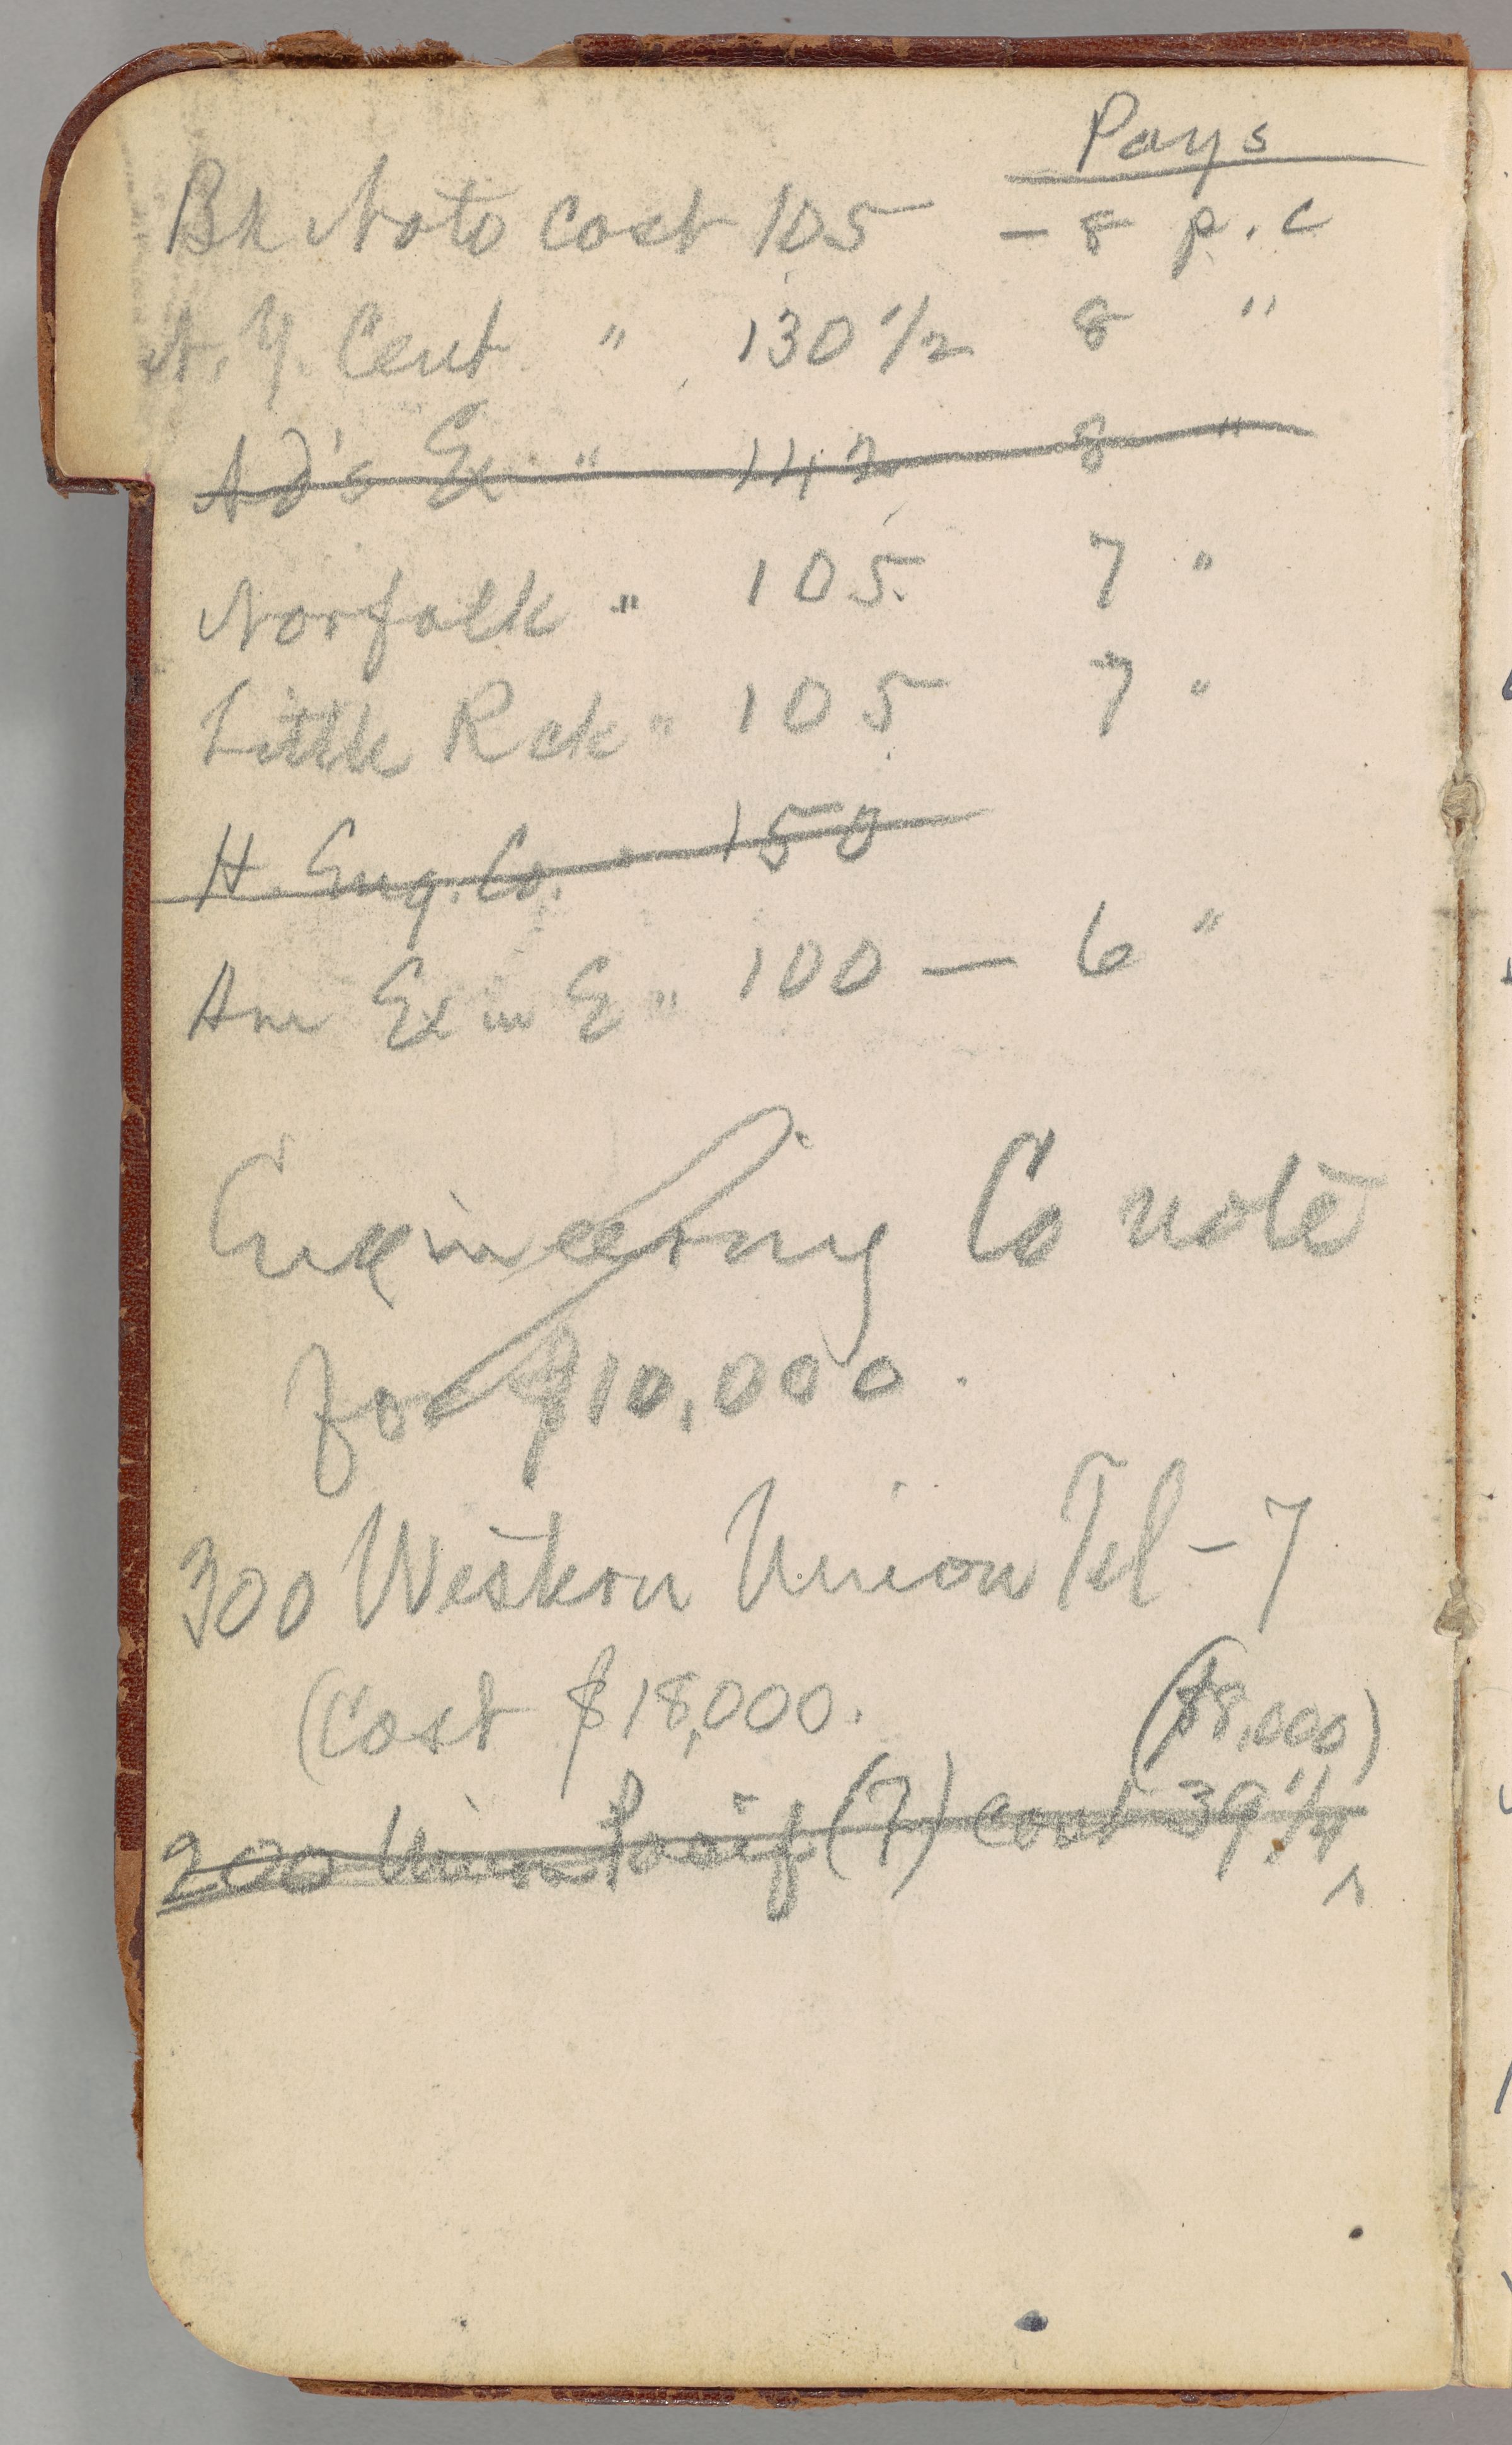 Pays
Bk Note Cost 105 — 8 p. c
N. Y. Cent " 130 1/2 8 "
Ad's Ex " 142 8 "
Norfolk " 105 7 "
Little Rck " 105 7 "
H. Eng. Co. 150
Am Ex in E " 100 — 6 "
Engineering Co note
for $10,000.
300 Western Union Tel - 7
(Cost $18,000. ($8,000)
200 Union Pacif (7) cost 39 1/4